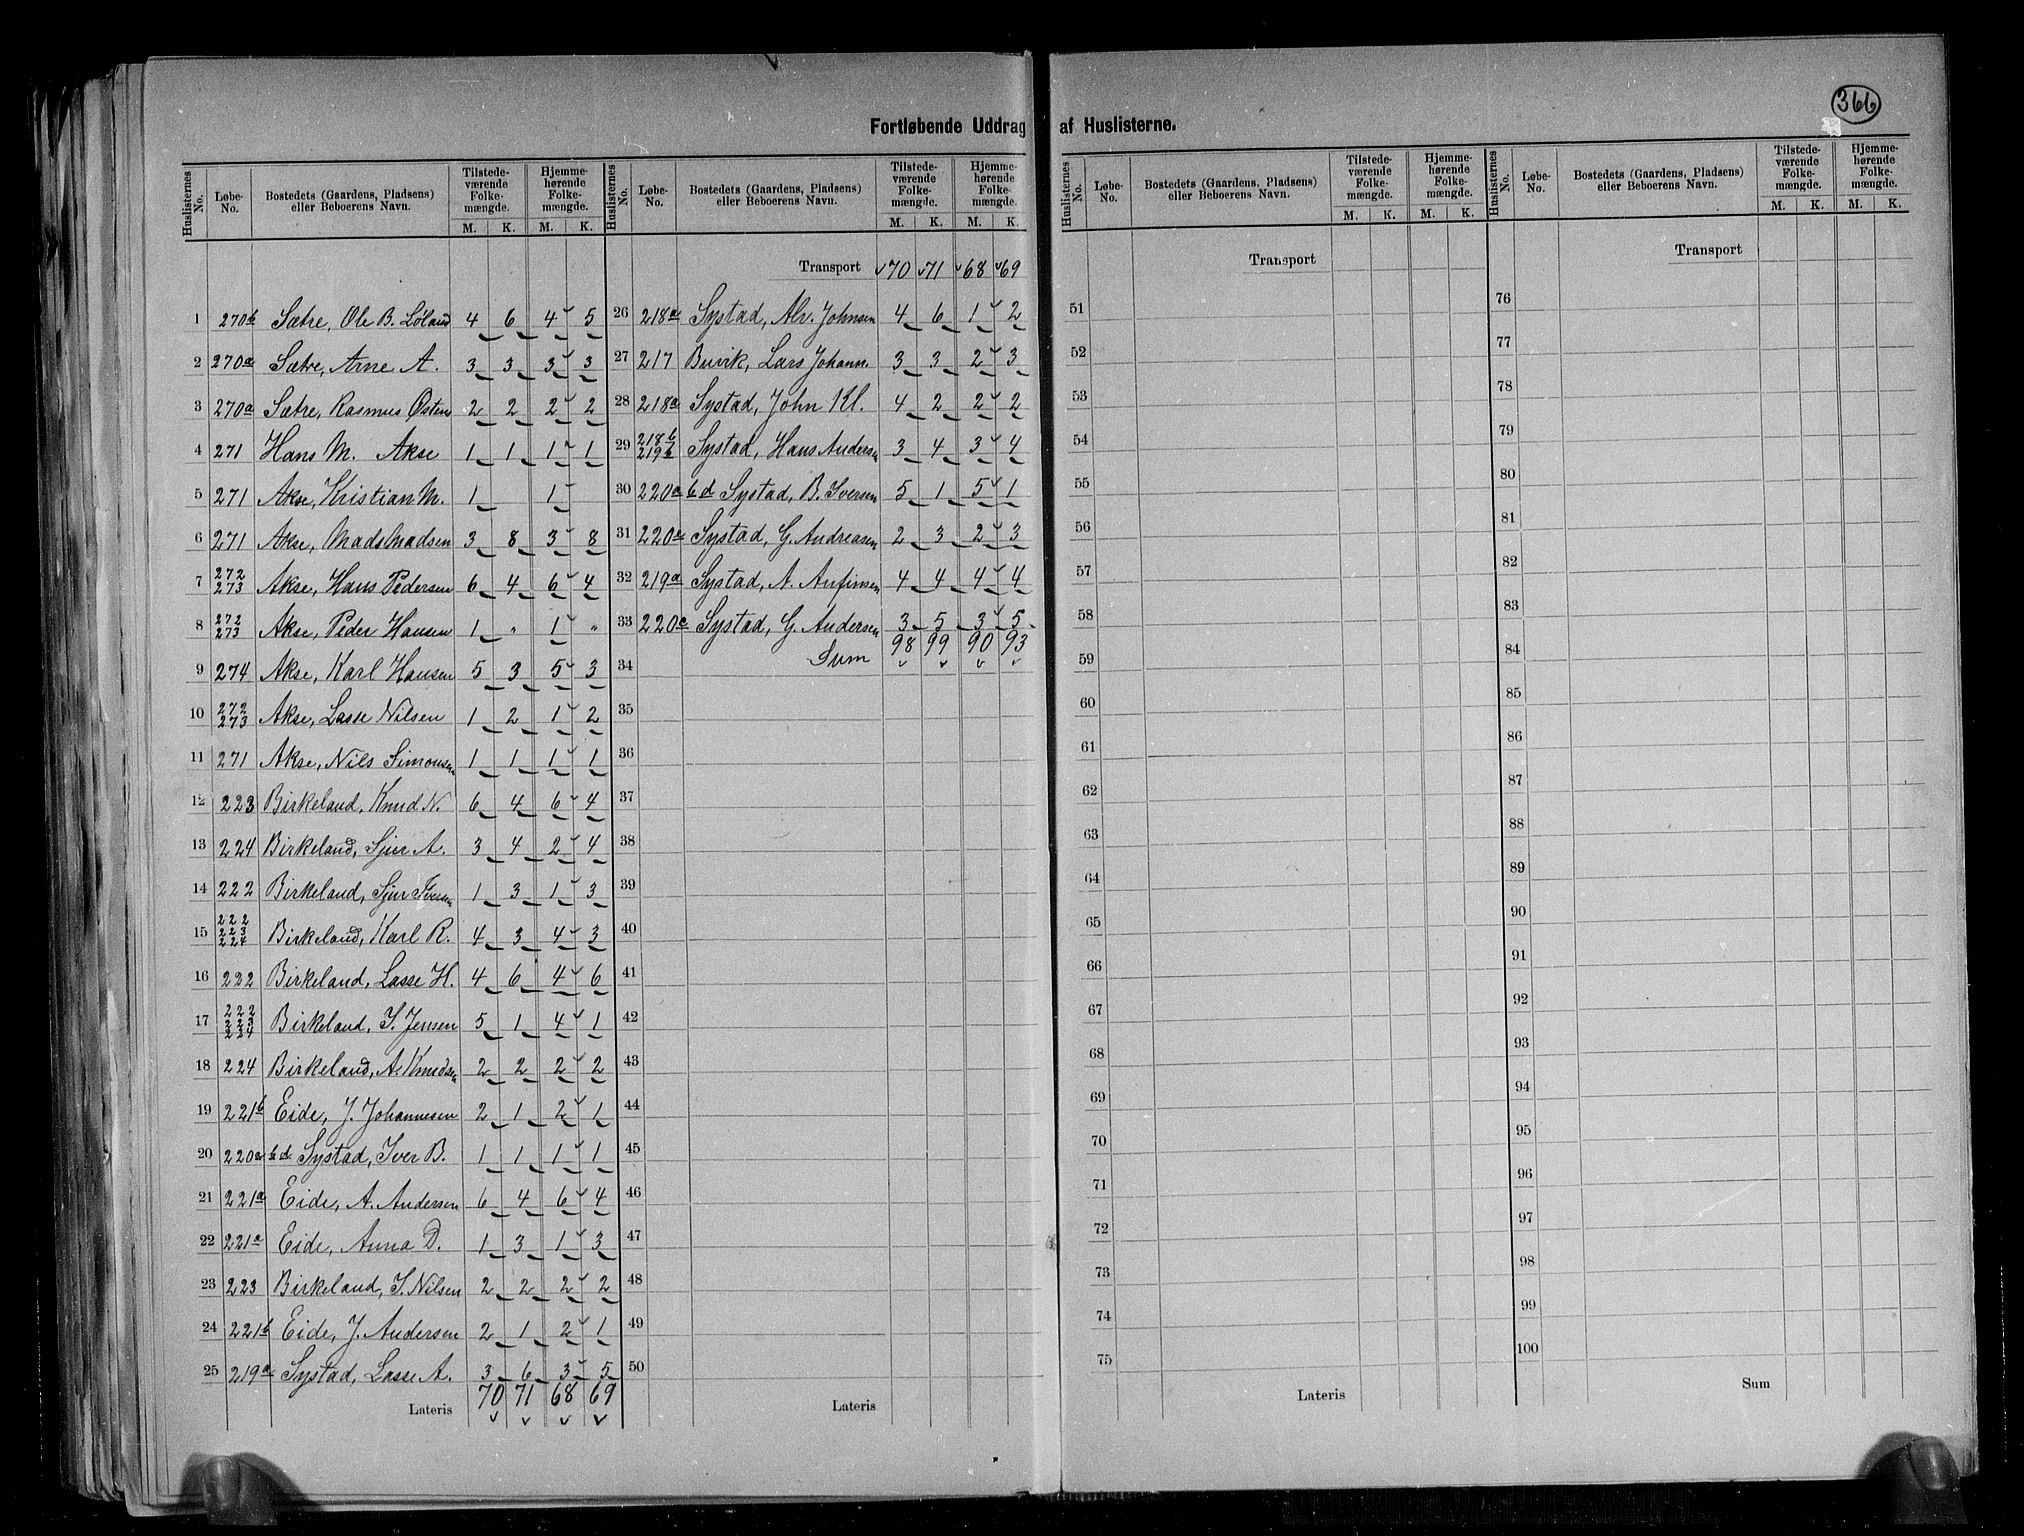 366
Fortløbende Uddrag af Huslisterne.
Huslisternes No. Løbe-No. Bostedets (Gaardens, Pladsens) eller Beboerens Navn. Tilstede-værende Folke-mængde. Hjemme-hørende Folke-mængde.
M. K. M. K.
1 270b Sætre, Ole B. Løland 4 6 4 5
2 270a Sætre, Arne A. 3 3 3 3
3 270a Sætre, Rasmus Østens 2 2 2 2
4 271 Hans M. Akse 1 1 1 1
5 271 Akse, Kristian M. 1 1
6 271 Akse, Mads Madsen 3 8 3 8
7 272 273 Akse, Hans Pedersen 6 4 6 4
8 272 273 Akse, Peder Hansen 1 " 1 "
9 274 Akse, Karl Hansen 5 3 5 3
10 272 273 Akse, Lasse Nilsen 1 2 1 2
11 271 Akse, Nils Simonsen 1 1 1 1
12 223 Birkeland, Knud N. 6 4 6 4
13 224 Birkeland, Sjur A. 3 4 2 4
14 222 Birkeland, Sjur Iversen 1 3 1 3
15 222 223 224 Birkeland, Karl R. 4 3 4 3
16 222 Birkeland, Lasse H. 4 6 4 6
17 222 223 224 Birkeland, I. Jensen 5 1 4 1
18 224 Birkeland, A. Knudsen 2 2 2 2
19 221b Eide, J. Johannesen 2 1 2 1
20 220a b d Systad, Iver B. 1 1 1 1
21 221a Eide, A. Andersen 6 4 6 4
22 221a Eide, Anna D. 1 3 1 3
23 223 Birkeland, S. Nilsen 2 2 2 2
24 221b Eide, J. Andersen 2 1 2 1
25 219a Systad, Lasse A. 3 6 3 5
Lateris 70 71 68 69
Huslisternes No. Løbe-No. Bostedets (Gaardens, Pladsens) eller Beboerens Navn. Tilstede-værende Folke-mængde. Hjemme-hørende Folke-mængde.
M. K. M. K.
Transport 70 71 68 69
26 218a Systad, Alr. Johnsen 4 6 1 2
27 217 Buvik, Lars Johann. 3 3 2 3
28 218a Systad, John Kl. 4 2 2 2
29 218b 219b Systad, Hans Andersen 3 4 3 4
30 220a b d Systad, B. Iversen 5 1 5 1
31 220a Systad, G. Andreasen 2 3 2 3
32 219a Systad, A. Anfinsen 4 4 4 4
33 220c Systad, G. Andersen 3 5 3 5
34 Sum 98 99 90 93
35
36
37
38
39
40
41
42
43
44
45
46
47
48
49
50
Lateris
Huslisternes No. Løbe-No. Bostedets (Gaardens, Pladsens) eller Beboerens Navn. Tilstede-værende Folke-mængde. Hjemme-hørende Folke-mængde.
M. K. M. K.
Transport
51
52
53
54
55
56
57
58
59
60
61
62
63
64
65
66
67
68
69
70
71
72
73
74
75
Lateris
Huslisternes No. Løbe-No. Bostedets (Gaardens, Pladsens) eller Beboerens Navn. Tilstede-værende Folke-mængde. Hjemme-hørende Folke-mængde.
M. K. M. K.
Transport
76
77
78
79
80
81
82
83
84
85
86
87
88
89
90
91
92
93
94
95
96
97
98
99
100
Sum